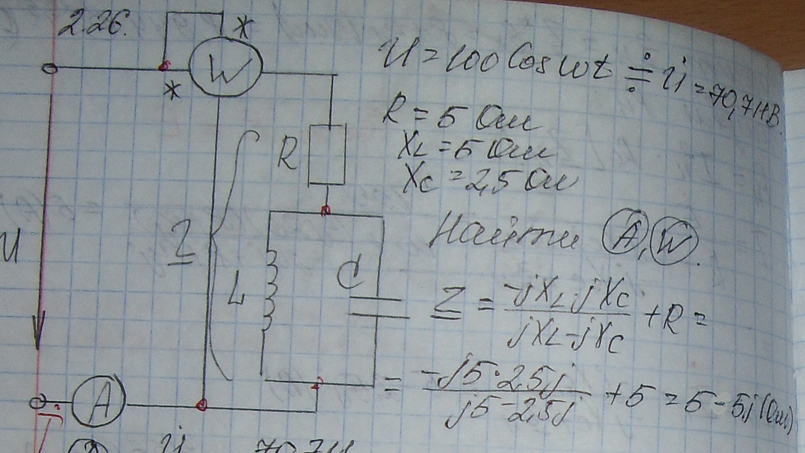 2.26.
*
W
*
U = 100 Cos ωt ≓ U̇ = 70,71 В.
R = 5 Ом
XL = 5 Ом
XC = 2,5 Ом
R
Найти A, W.
U
Z
L
C
Z = -jXL·jXC / jXL - jXC + R =
= -j5·2,5j / j5 - 2,5j + 5 = 5 - 5j (Ом)
A
70,71